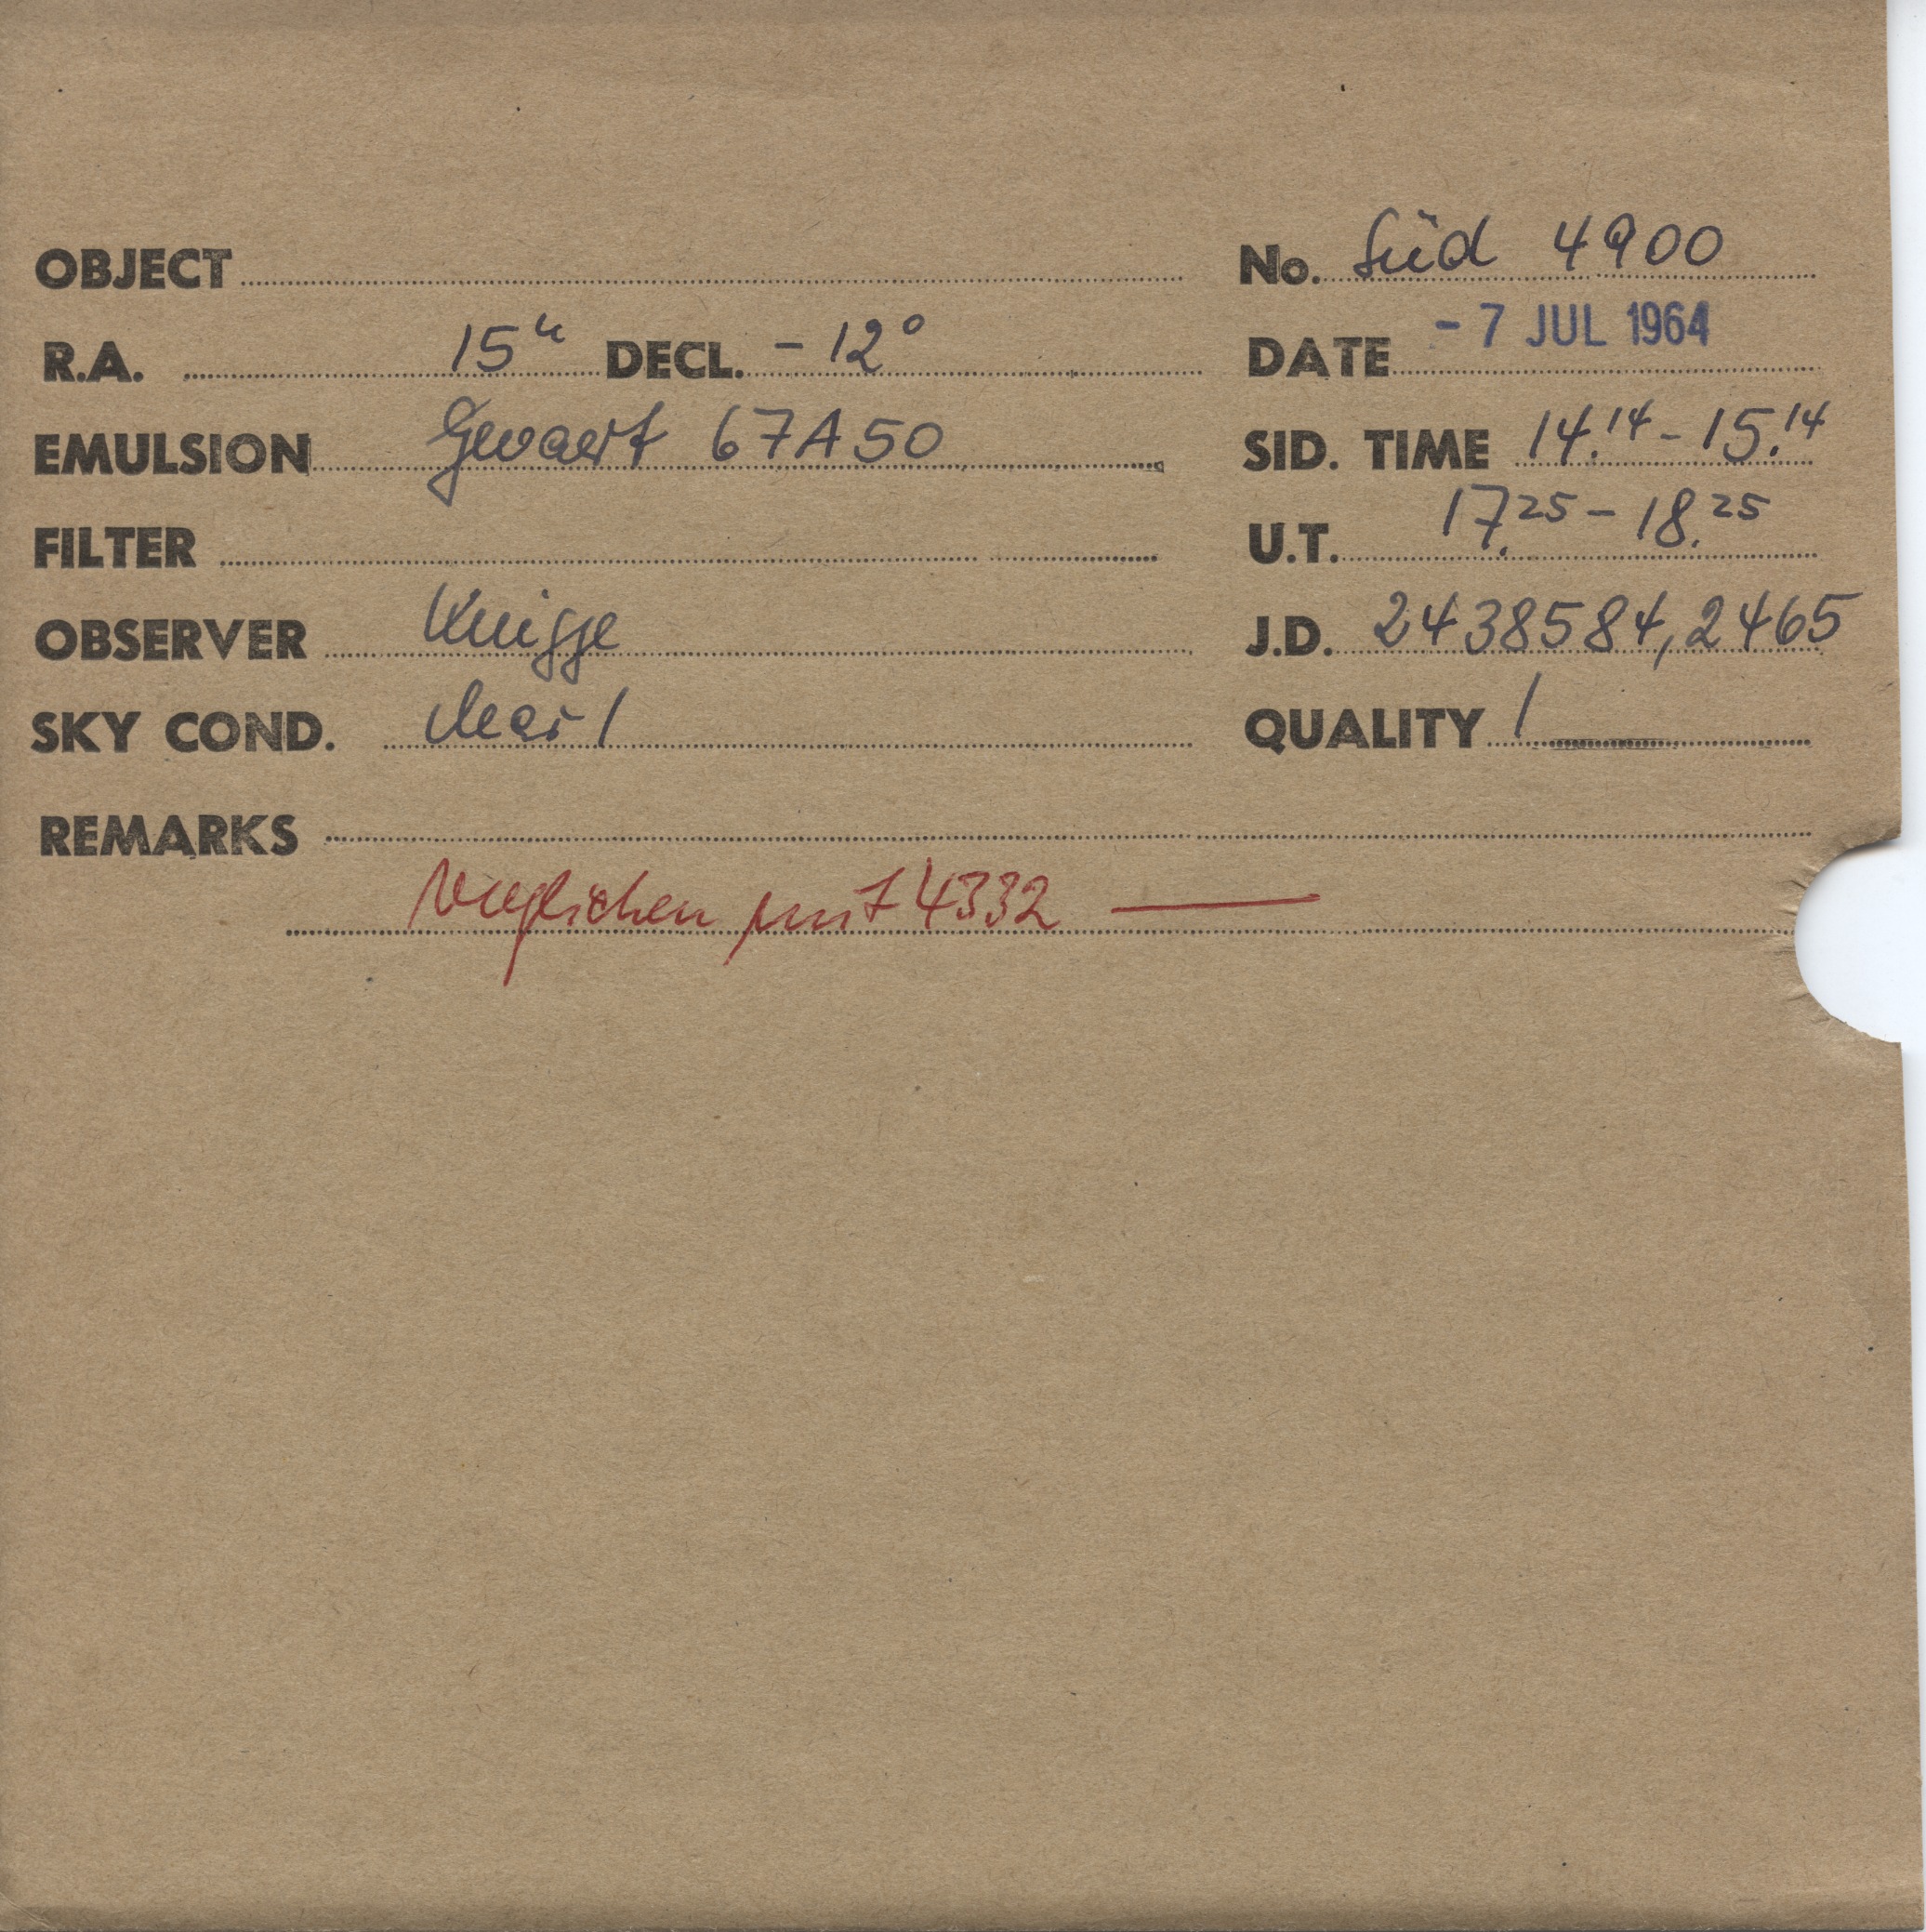 OBJECT No. Süd 4900
R.A. 15h DECL. - 12° DATE - 7 JUL 1964
EMULSION Gevaert 67A50 SID. TIME 14.14 - 15.14
FILTER U.T. 17.25 - 18.25
OBSERVER Knigge J.D. 2438584,2465
SKY COND. clear 1 QUALITY 1
REMARKS
verglichen mit 4332 —